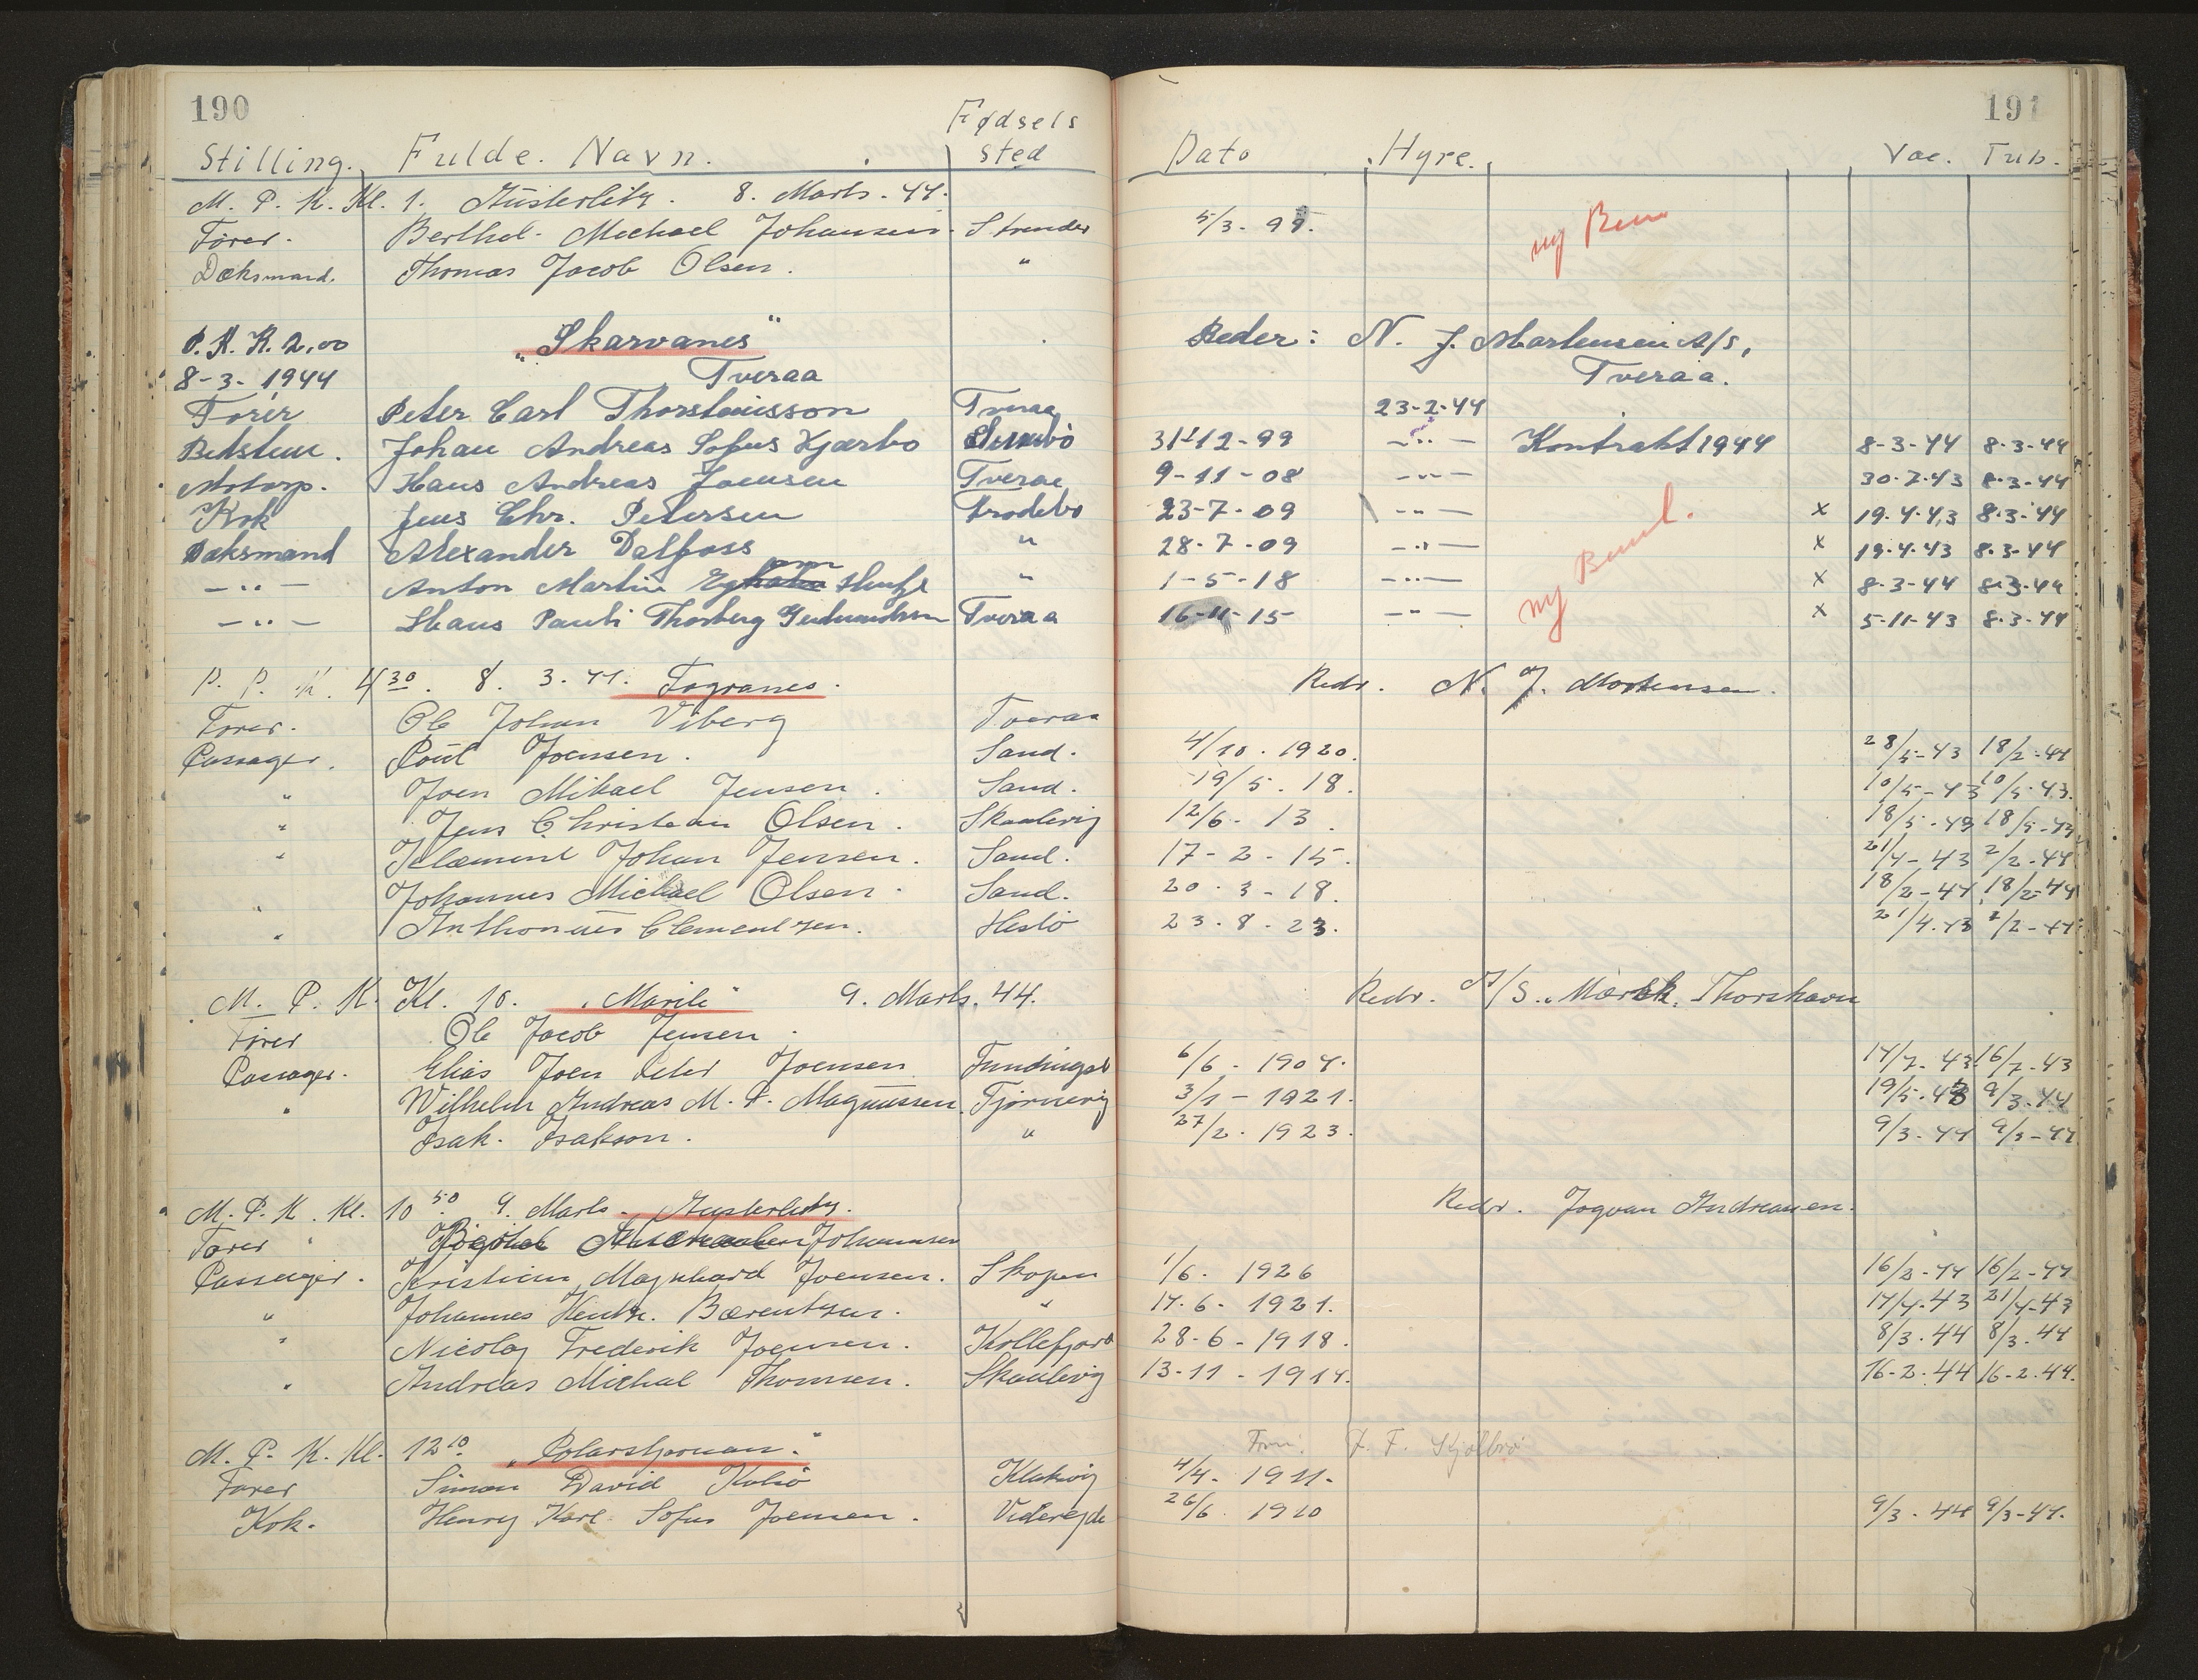 190
191
Stilling. Fulde. Navn. Fødsels Sted Dato Hyre. Vac. Tub.
M. P. K. Kl. 1. Austerlitz. 8. Marts. 44.
Fører. Berthel Michael Johansen Strender 5/3. 99. ny
Dæksmand. Thomas Jacob Olsen. "
P. K. K. 2,00 "Skarvanes" Reder: N. J. Mortensen A/S,
8-3-1944 Tveraa Tveraa.
Fører Peter Carl Thorsteinsson Tveraa 23-2-44
Bedstem. Johan Andreas Sofus Kjærbo Sumbö 31-12-99 -"- Kontrakt 1944 8-3-44 8-3-44
Motorp. Hans Andreas Joensen Tveraa 9-11-08 -"- 30.7.43 8.3-44
Kok Jens Chr. Petersen Frodebø 23-7-09 -"- x 19.4.43 8.3.44
Dæksmand Alexander Dalfoss " 28-7-09 -"- x 19.4.43 8.3.44
-"- Anton Martin " 1-5-18 -"- x 8.3-44 8.3.44
-"- Hans Pauli Thorberg Gudmundsson Tveraa 16-11-15 -"- ny x 5-11-43 8.3.44
P. P. K. 4 30. 8. 3. 44. Fogranes. Redr. N. J. Mortensen.
Fører. Ole Johan Viberg Tveraa
Passager. Poul Joensen. Sand. 4/10. 1920. 28/5-43 18/2-44
" Joen Mikael Jensen. Sand. 19/5. 18. 10/5-43 10/5.43.
" Jens Christian Olsen. Skaalevig 12/6. 13. 18/5-43 18/5-43
" Klæmint Johan Jensen. Sand. 17-2-15. 21/4-43 2/2-44
" Johannes Michael Olsen. Sand. 20.3-18. 18/2-44 18/2-44
" Anthonius Clementsen. Hestø 23.8.23. 21/4.43 2/2-44
M. P. K. Kl. 10. "Marili" 9. Marts. 44. Redr. A/S. Mærsk, Thorshavn
Fører Ole Jacob Jensen.
Passager. Elias Joen Peter Joensen Fundingsb 6/6. 1904. 14/7.43 16/7.43
" Wilhelm Andreas M. P. Magnussen. Tjørnevig 3/1-1921. 19/5.43 9/3.44
Isak. Isakson. " 27/2. 1923. 9/3.44 9/3-44
M. P. K. Kl. 10 50. 9. Marts. Austerlitz. Redr. Jogvan Andreasen.
Fører Johannesen
Passager. Kristian Magnhard Joensen. Skopen 1/6. 1926 16/2-44 16/2-44
" Johannes Hentze. Bærentsen. " 14.6-1921. 14/4.43 21/4-43
" Nicolaj Frederik Joensen. Kollefjord 28-6-1918. 8/3.44 8/3.44
" Andreas Michal Thomsen. Skaalevig 13-11-1914. 16-2.44 16-2.44.
M. P. K. Kl. 12 10. "Polarstjernan." J. F. Kjølbro
Fører Simon David Klakvig 4/4. 1911.
Kok. Henry Karl Sofus Joensen. Viderejde 26/6 1910 9/3.44 9/3-44.